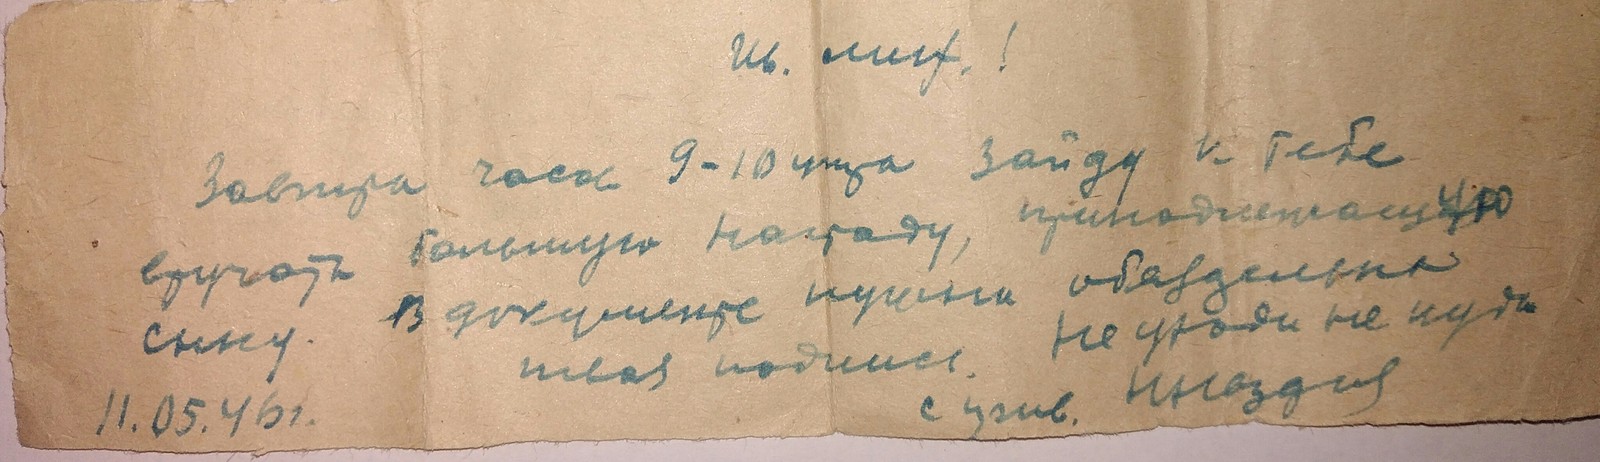 Ив. Мих.!
Завтра часов 9-10 утра зайду к тебе
вручать большую награду, принадлежащую
сыну. В документе нужна обязательно
твоя подпись. Не уходи не куда
11.05.46г. с прив.